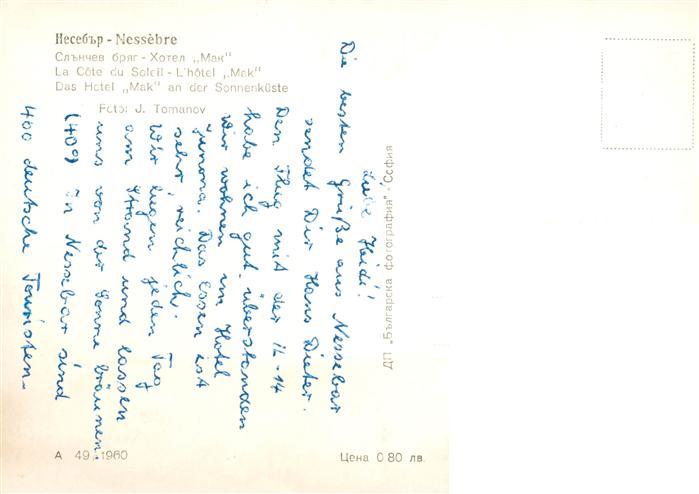 Несебър - Nessèbre
Слънчев бряг - Хотел „Мак“
La Côte du Soleil - L'hôtel „Mak“
Das Hotel „Mak“ an der Sonnenküste
Foto: J. Tomanov
Liebe Heidi!
Die besten Grüße aus Nessebar
sendet Dir Hans Dieter.
Den Flug mit der IL-14
habe ich gut überstanden
Wir wohnen im Hotel
Das Essen ist
sehr reichlich.
Wir liegen jeden Tag
am Strand und lassen
uns von der Sonne bräunen.
(409) In Nessebar sind
400 deutsche Touristen.
ДП „Българска фотография“ - София
А 49/1960
Цена 0 80 лв.